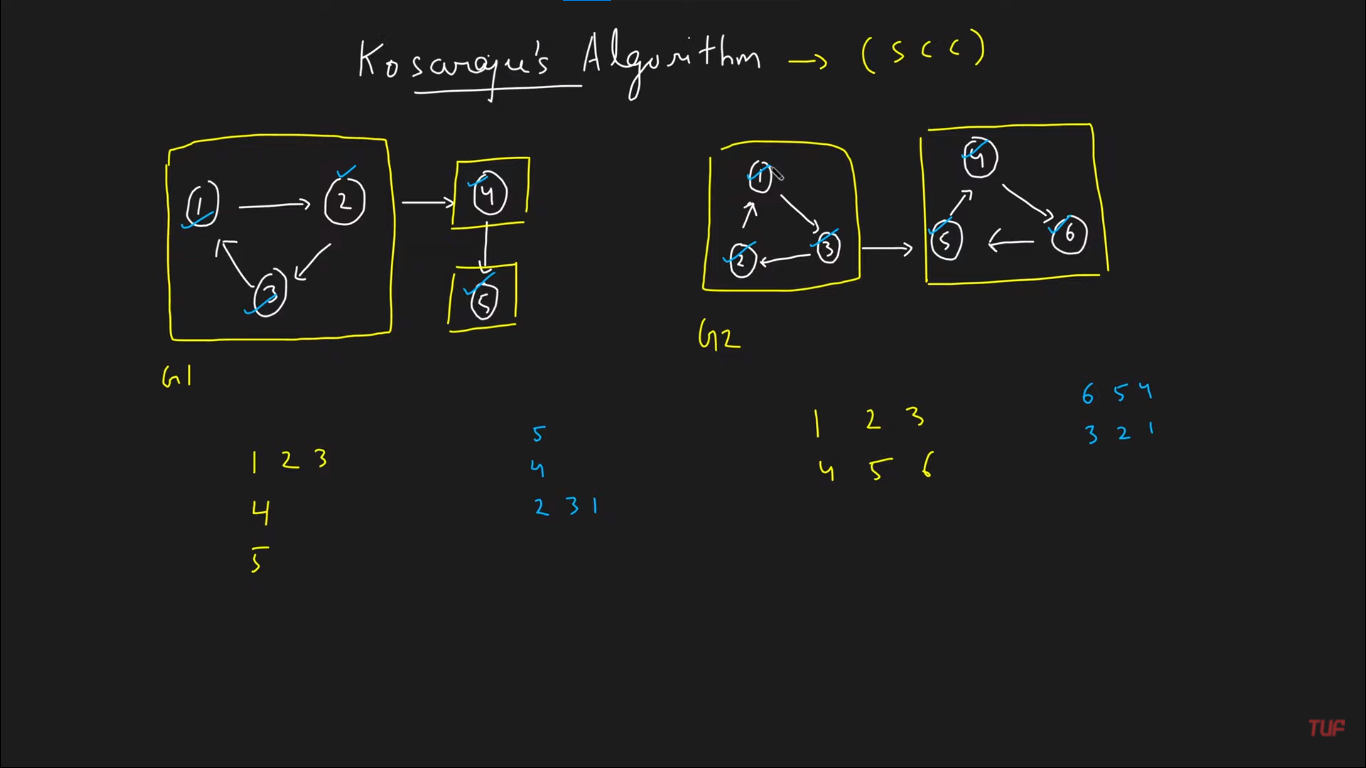 Kosaraju's Algorithm → (SCC)
1 → 2 → 4
3
5
G1
1
2 ← 3 →
4
5 ← 6
G2
1 2 3
4
5
5
4
2 3 1
1 2 3
4 5 6
6 5 4
3 2 1
TUF